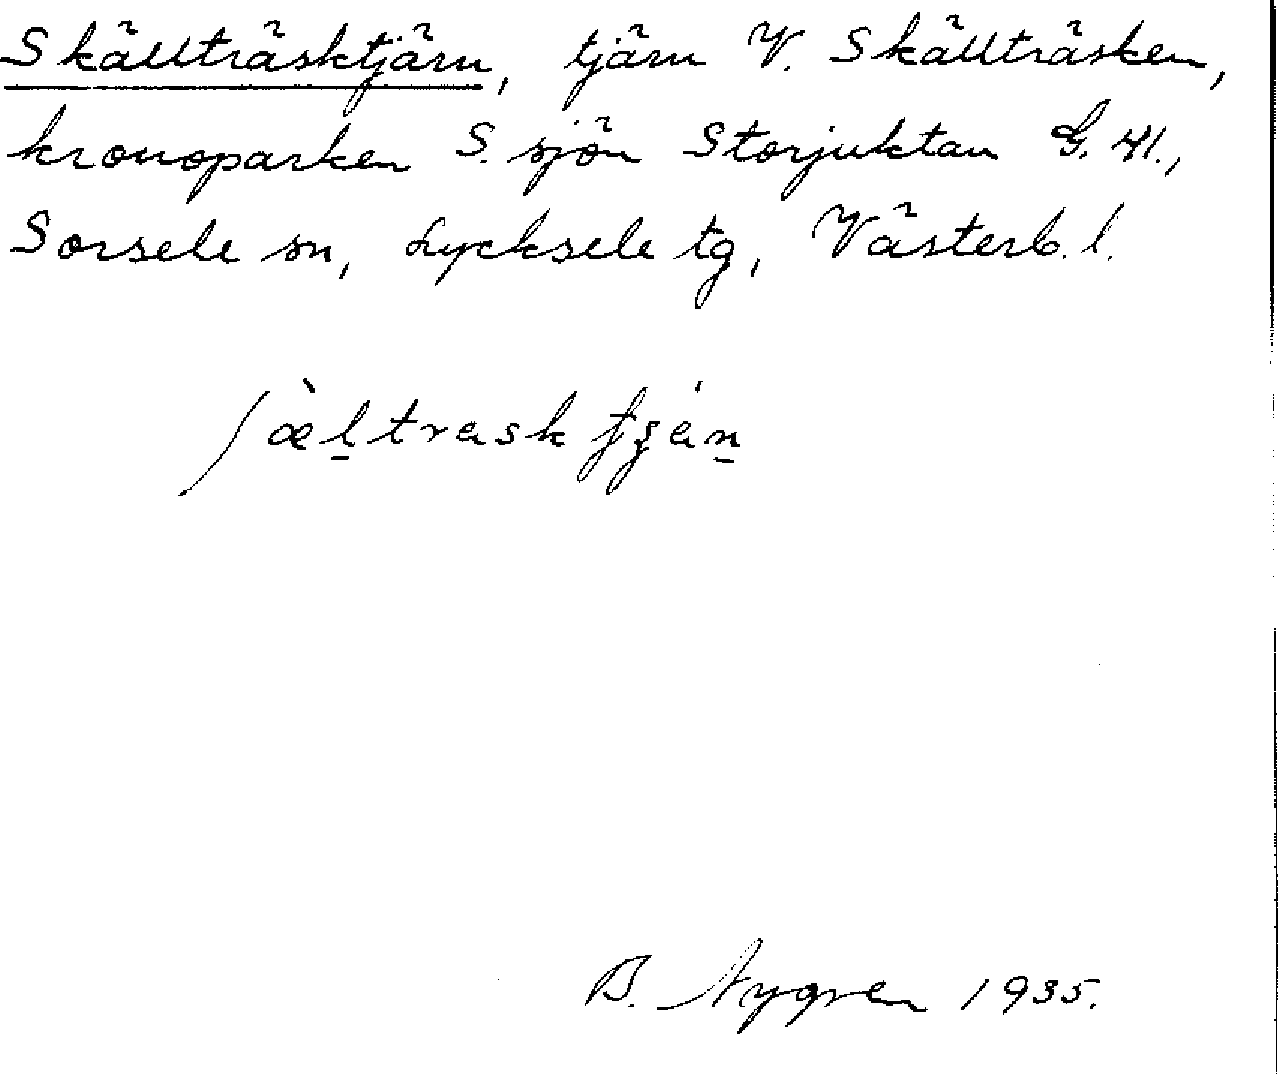 Skällträsktjärn, tjärn V. Skällträsken,
kronoparken S. sjön Storjuktan G. 41.,
Sorsele sn, Lycksele tg, Västerb. l.
ʃæ̀l̠traskt̠ʒán̠
B. Nygren 1935.